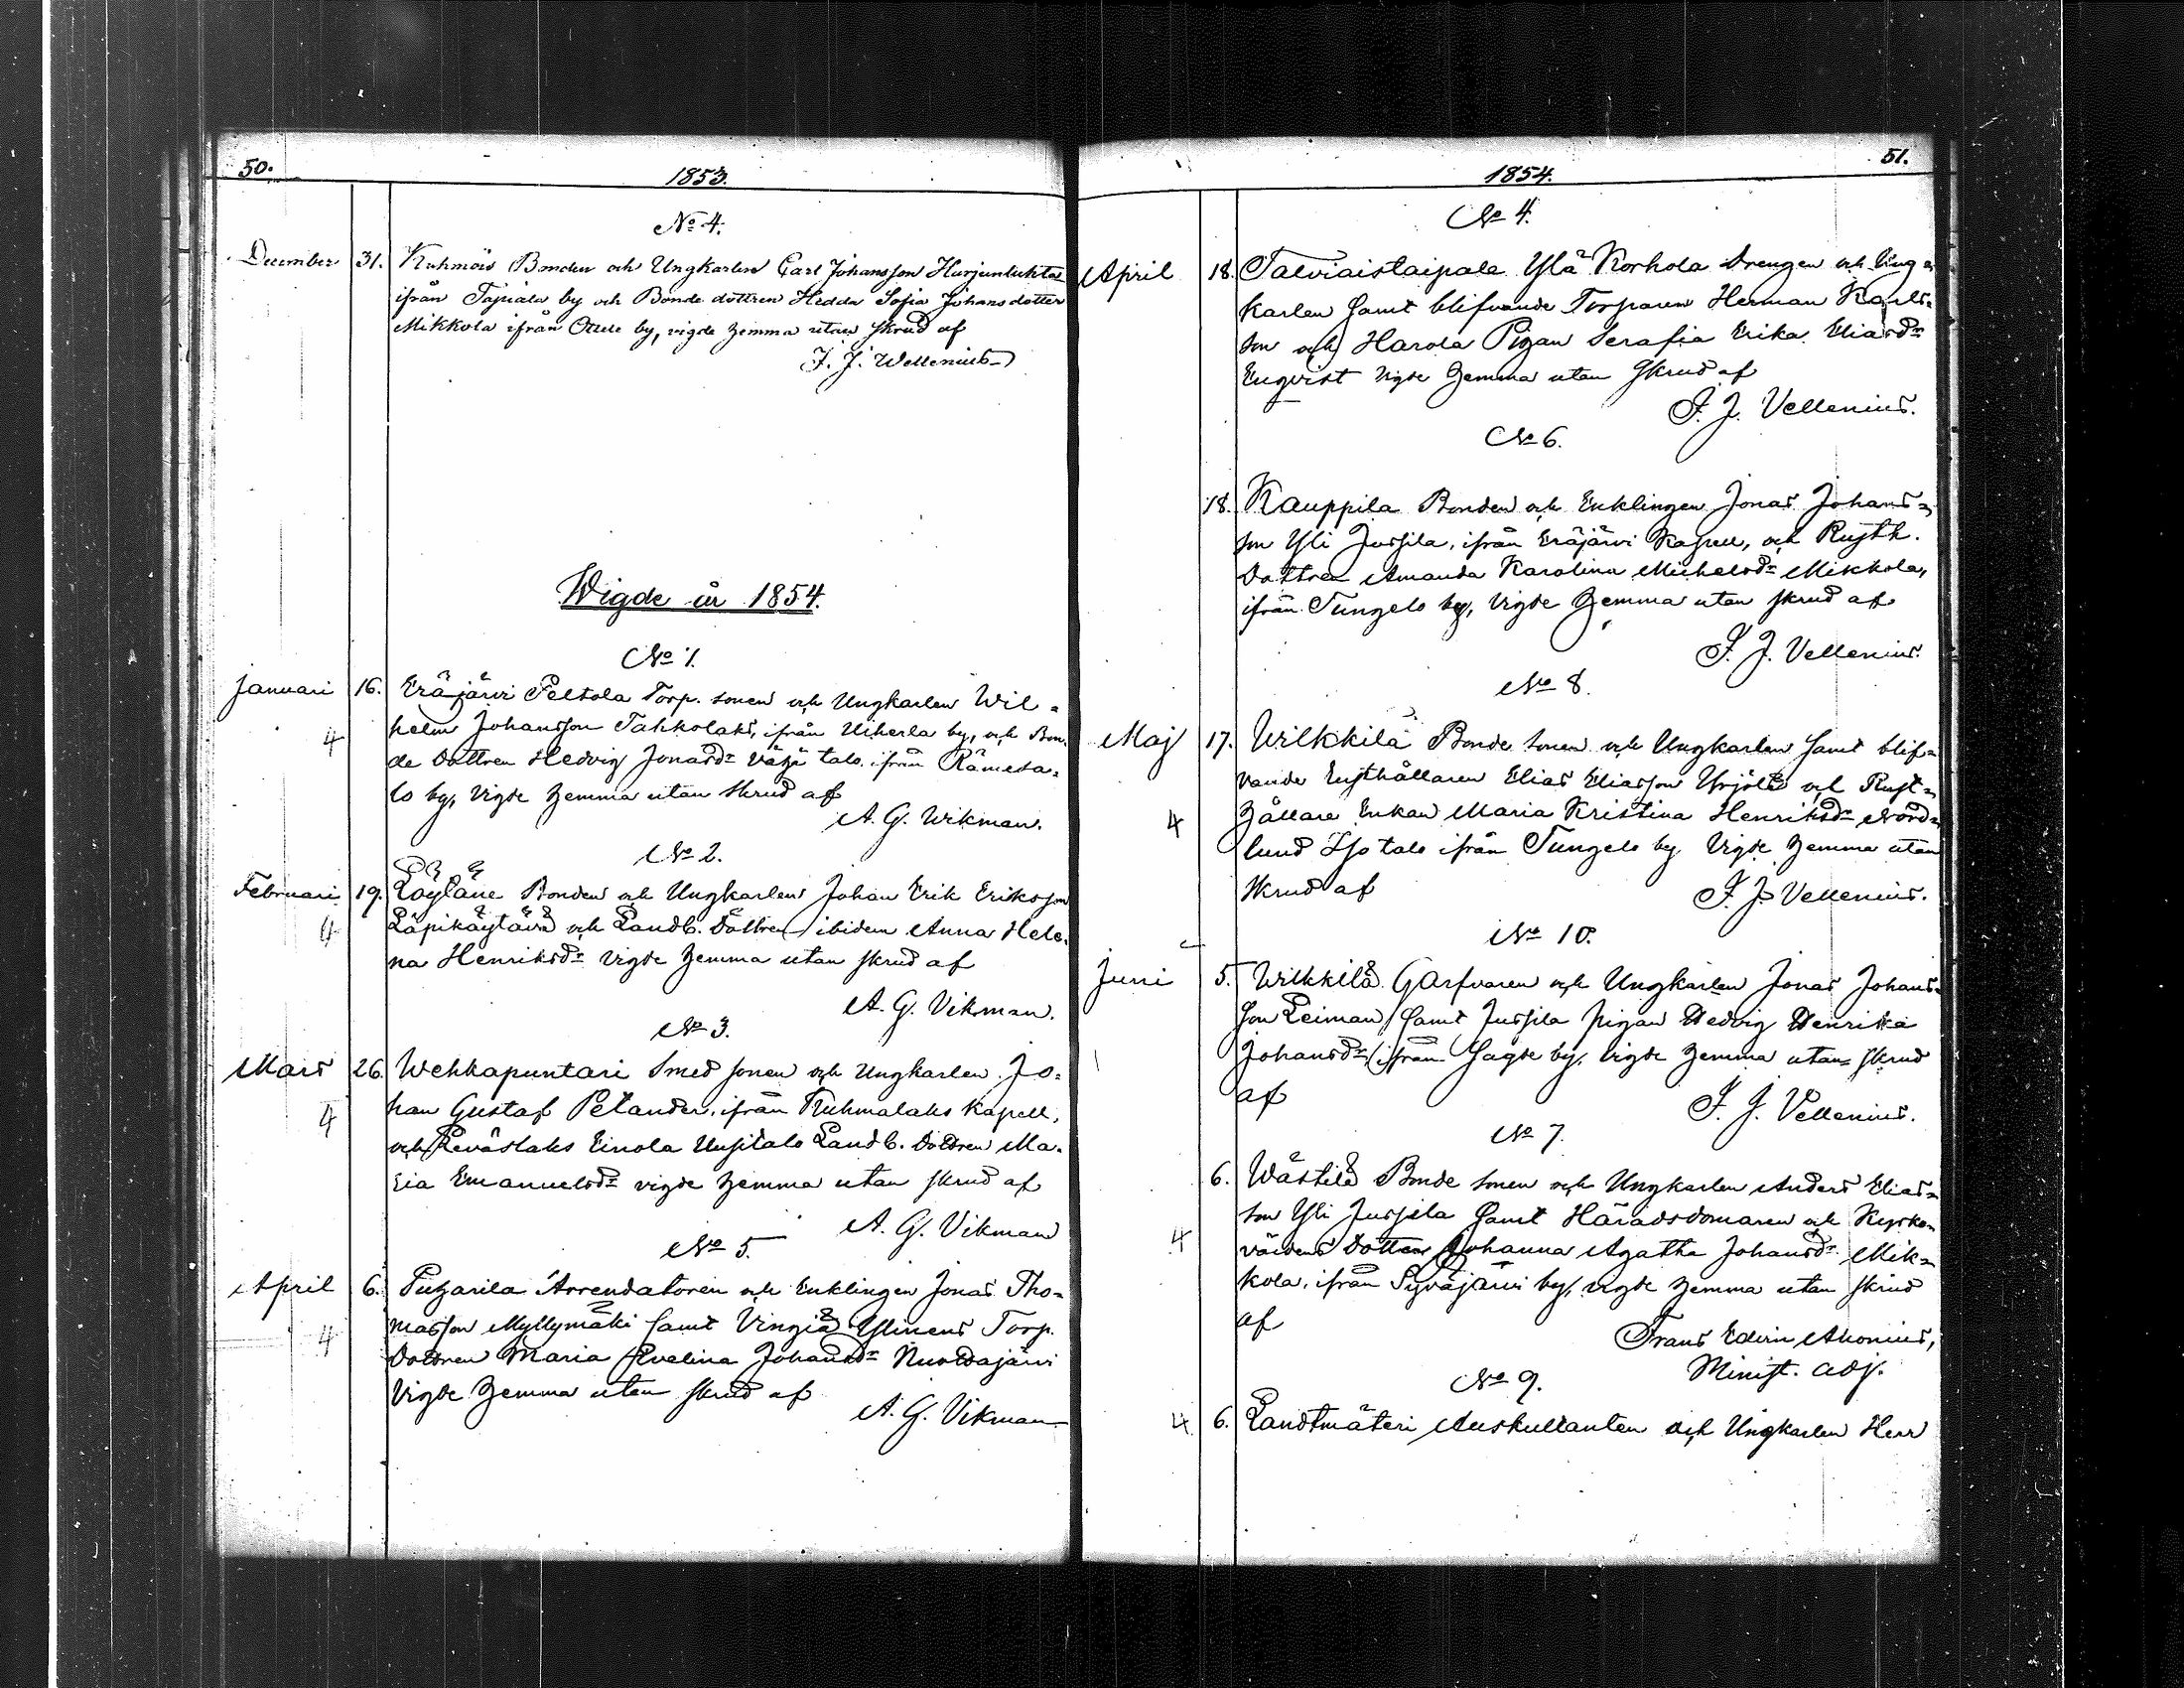 50.
1853.
No 4.
December 31. Kuhmois Bonden och Ungkarlen Carl Johansson Harjunluhta
ifrån Tapiala by och Bonde dottren Hedda Sofia Johansdotter
Mikkola ifrån by, vigde hemma utan skrud af
F. J. Wellenius
Wigde år 1854.
No 1.
Januari 16. Eräjärvi Peltola Torp. sonen och Ungkarlen Wil-
4 helm Johansson Tahkolaks, ifrån Uiherla by, och Bon-
de dottren Hedvig Jonasdr Vähä talo ifrån Rämesa-
lo by, Vigde hemma utan skrud af
A. G. Wikman.
No 2.
Februari 19. Löytäne Bonden och Ungkarlen Johan Erik Eriksson
4 Läpikäytävä och Landb. Dottren ibidem Anna Hele-
na Henriksdr Vigde hemma utan skrud af
A. G. Vikman.
No 3.
Mars 26. Wehkapuntari Smed sonen och Ungkarlen Jo-
4 han Gustaf Petander, ifrån Kuhmalaks Kapell,
och Leväslaks Einola Uusitalo Landb. Dottren Ma-
ria Emanuelsdr vigde hemma utan skrud af
A. G. Vikman
No 5.
April 6. Puharila Arrendatoren och Enklingen Jonas Tho-
4 masson Myllymäki samt Vingiä Ylinens Torp.
Dottren Maria Evelina Johansdr Nuoldajärvi
Vigde hemma utan skrud af
A. G. Vikman
51.
1854.
No 4.
April 18. Talviaistaipale Ylä Korhola Drengen och Ung-
karlen samt blifvande Torparen Herman Karls-
son och Harola Pigan Serafia Erika Eliasdr
Enqvist vigde hemma utan skrud af
F. J. Vellenius.
No 6.
18. Kauppila Bonden och Enklingen Jonas Johans-
son Yli Jussila, ifrån Eräjärvi Kapell, och Rusth.
Dottren Amanda Karolina Michelsdr Mikkola,
ifrån Tungelo by, Vigde hemma utan skrud af
F. J. Vellenius.
No 8.
Maj 17. Wilkkilä Bonde sonen och Ungkarlen samt blif-
vande Rusthållaren Elias Eliasson Yrjölä och Rust-
4 hållare Enkan Maria Kristina Henriksdr Nord-
lund Iso talo ifrån Tungelo by Vigde hemma utan
skrud af
F. J. Vellenius.
No 10.
Juni 5. Wilkkilä Garfvaren och Ungkarlen Jonas Johans-
son Leiman samt Jussila pigan Hedvig Henrika
Johansdr ifrån Sagde by, Vigde hemma utan skrud
af
F. J. Vellenius.
No 7.
6. Wästilä Bonde sonen och Ungkarlen Anders Elias-
son Yli Jussila samt Häradsdomaren och Kyrko-
4 värdens Dotter Johanna Agatha Johansdr Mik-
kola, ifrån Syväjärvi by, vigde hemma utan skrud
af
Frans Edvin Ahonius,
Minist. adj.
No 9.
4 6. Landtmäteri Auskultanten och Ungkarlen Herr